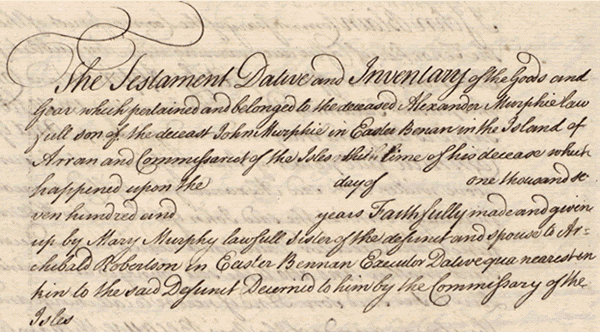 The Testament Dative and Inventary of the Gods and
Gear which pertained and belonged to the deceased Alexander Murphie law
full son of the deceast John Murphie in Easter Benan in the Island of
Arran and Commissariot of the Isles time of his decease which
happened upon the day of one thousand se
ven hundred and years Faithfully made and given
up by Mary Murphy lawfull sister of the defunct and spouse to Ar-
chibald Robertson in Easter Bennan Executor Dative qua nearest in
kin to the said Defunct Decerned to him by the Commissary of the
Isles